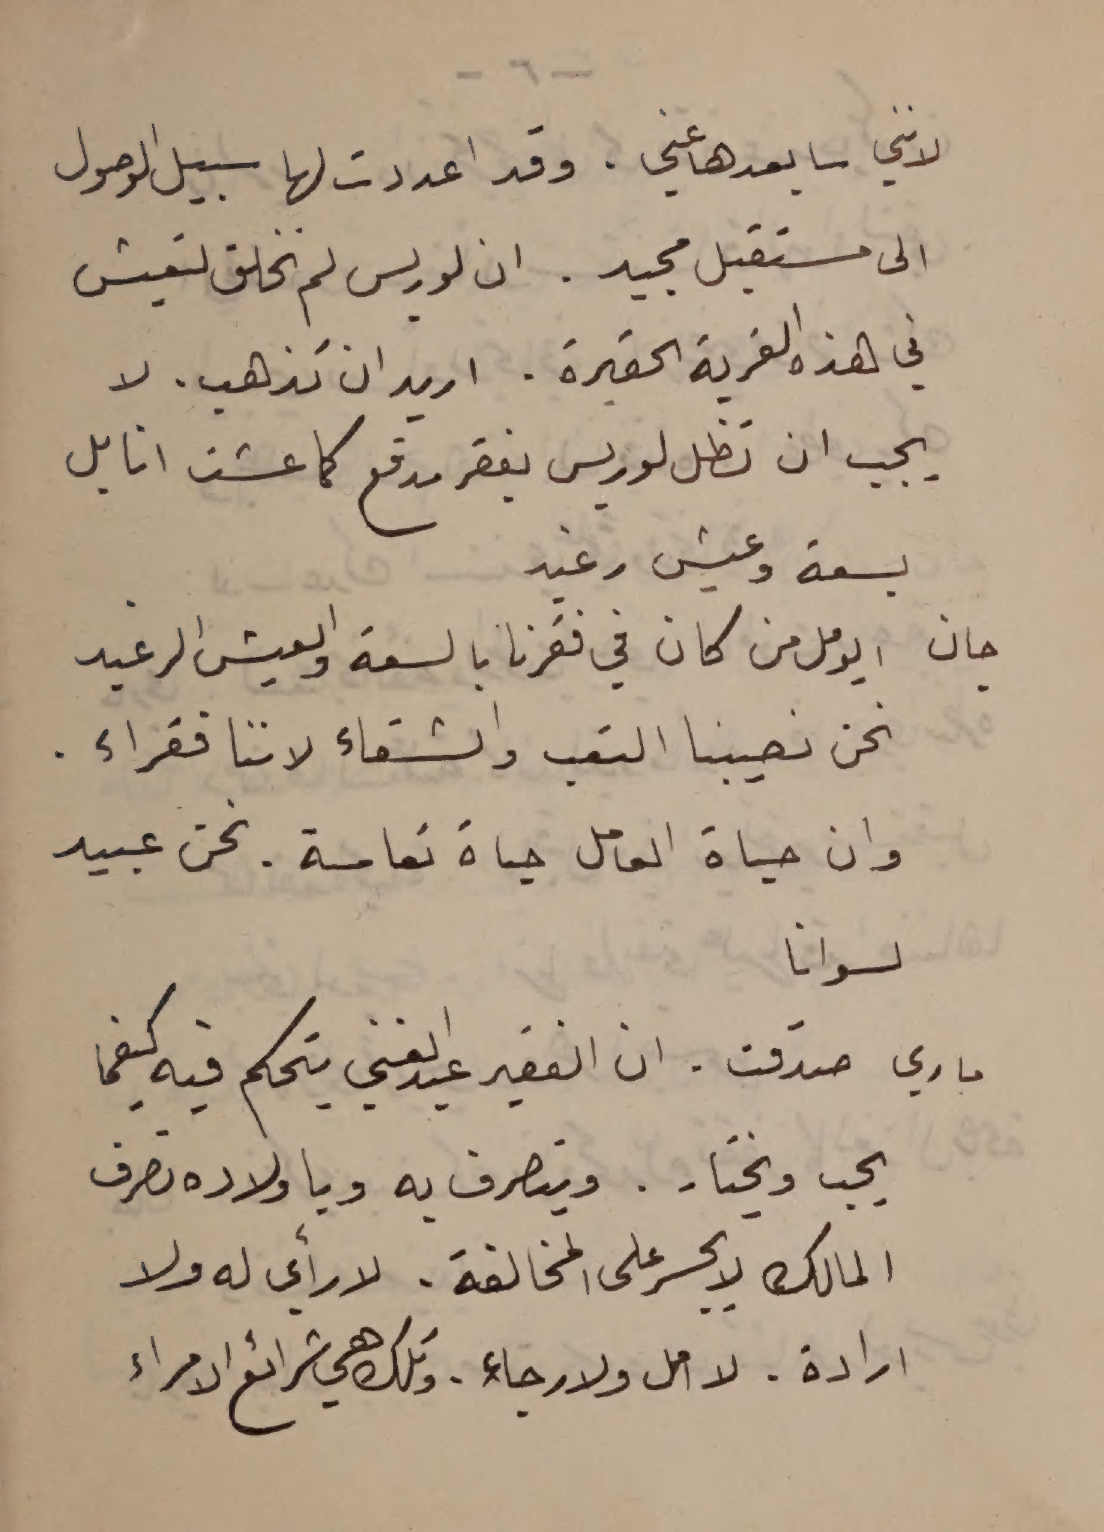 - ٦ -
لانني سابعدها عني . وقد اعددت لها سبيل الوصول
الى مستقبل مجيد . ان لوريس لم تخلق لتعيش
في هذه القرية الحقيرة . اريد ان تذهب . لا
يجب ان تظل لوريس بفقر مدقع كما عشت انا بل
بسعة وعيش رغيد
جان ايومل من كان في فقرنا بالسعة والعيش الرغيد
نحن نصيبنا التعب والشقاء لاننا فقراء .
وان حياة العامل حياة تعاسة . نحن عبيد
لسوانا
ماري صدقت . ان الفقير عبد الغني يتحكم فيه كيفما
يحب ويختار . ويتصرف به وباولاده تصرف
المالك لا يجسر على المخالفة . لا رأي له ولا
ارادة . لا امل ولا رجاء . وتلك هي شرائع الامراء